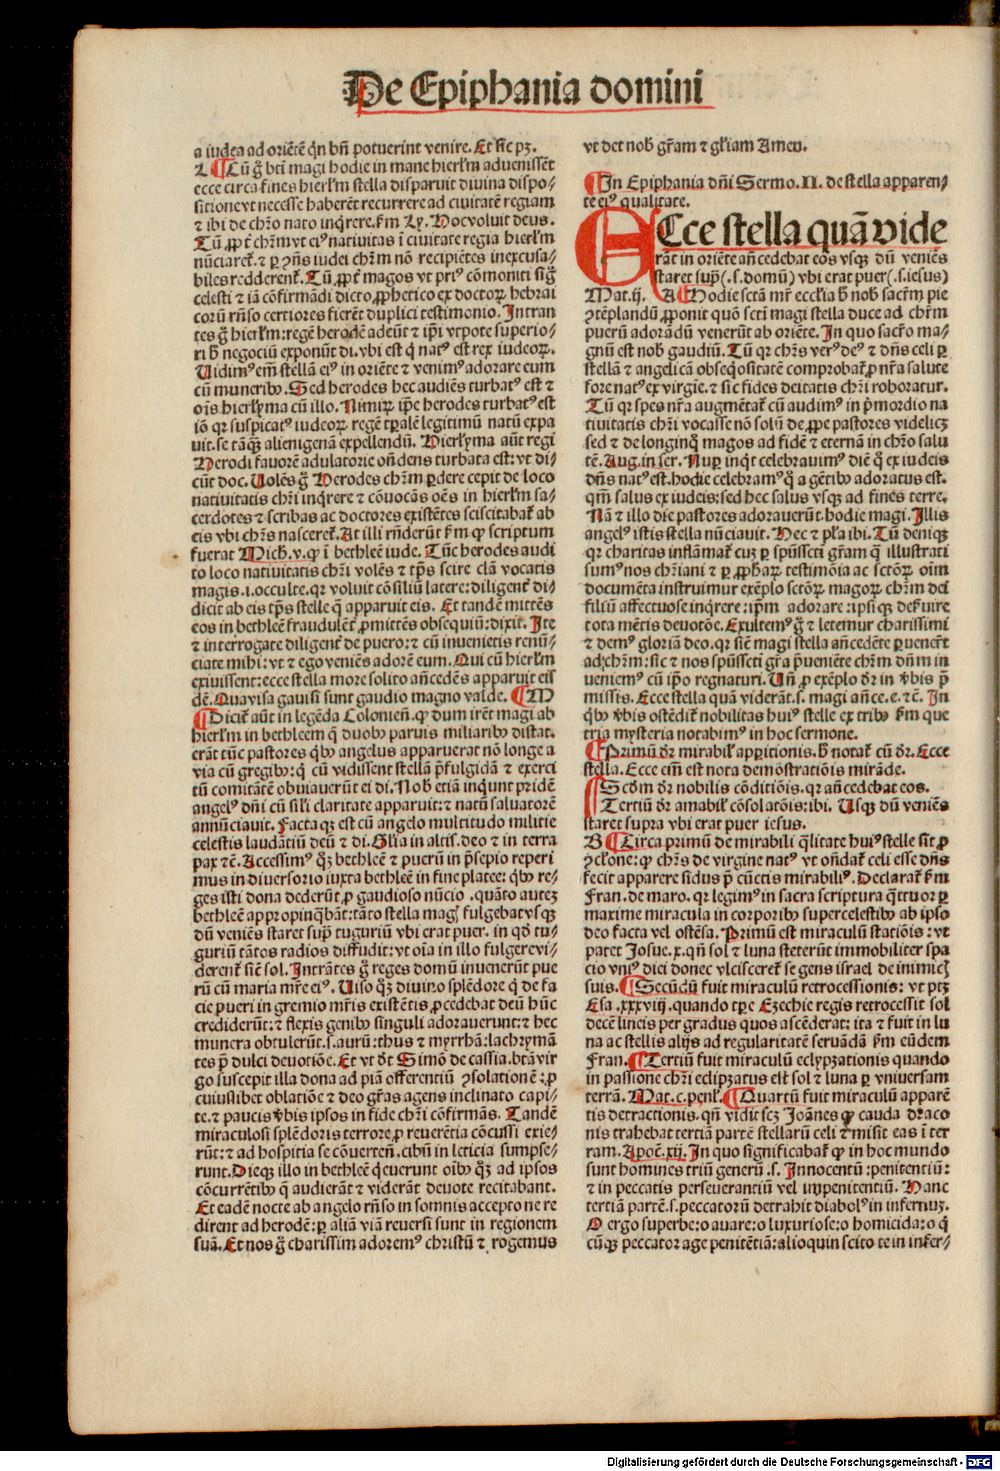 De Epiphania domini
a iudea ad oriētē q̄n bn̄ potuerint venire. Et sic pꝫ.
L ¶ Cū g̊ bt̄i magi hodie in mane hierłm aduenissēt
ecce circa fines hierłm stella disparuit diuina dispo⸗
sitione vt necesse haberēt recurrere ad ciuitatē regiam
⁊ ibi de chr̄o nato inq̄rere. ẜm Ly. Hoc voluit deus.
Tū ꝓpt̄ chr̄m vt eiꝰ natiuitas ī ciuitate regia hierłm
nūciaret̄. ⁊ ꝑ ꝯn̄s iudei chr̄m nō recipiētes inexcusa⸗
biles redderent̄. Tū ꝓpt̄ magos vt priꝰ cōmoniti sig̊
celesti ⁊ iā cōfirmādi dicto ꝓphetico ex doctoꝝ hebrai
corū rn̄so certiores fierēt duplici testimonio. Intran
tes g̊ hierłm: regē herodē adeūt ⁊ ip̄i vtpote superio⸗
ri h̄ negociū exponūt di. vbi est q̄ natꝰ est rex iudeoꝝ.
Uidimꝰ em̄ stellā eiꝰ in oriēte ⁊ venimꝰ adorare eum
cū muneribꝰ. Sed herodes hec audiēs turbatꝰ est ⁊
oīs hierłyma cū illo. Nimiꝝ ip̄e herodes turbatꝰ est
iō qꝛ suspicatꝰ iudeoꝝ regē tꝑalē legitimū natū expa
uit. se tāꝙ alienigenā expellendū. Hierłyma aūt regi
Herodi fauorē adulatorie on̄dens turbata est: vt di⸗
cūt doc. Uolēs g̊ Herodes chr̄m ꝑdere cepit de loco
natiuitatis chr̄i inq̄rere ⁊ cōuocās oēs in hierłm sa⸗
cerdotes ⁊ scribas ac doctores existētes sciscitabat̄ ab
eis vbi chr̄s nasceret̄. At illi rn̄derūt ẜm ꝙ scriptum
fuerat Mich. v. ꝙ ī bethleē iude. Tūc herodes audi
to loco natiuitatis chr̄i volēs ⁊ tp̄s scire clā vocatis
magis .i. occulte. qꝛ voluit cōsiliū latere: diligent̄ di⸗
dicit ab eis tp̄s stelle q̄ apparuit eis. Et tandē mittēs
eos in bethleē fraudulēt̄ ꝓmittēs obsequiū: dixit. Ite
⁊ interrogate diligent̄ de puero: ⁊ cū inuenietis renū⸗
ciate mihi: vt ⁊ ego veniēs adorē eum. Qui cū hierłm
exiuissent: ecce stella more solito an̄cedēs apparuit eis
dē. Qua visa gauisi sunt gaudio magno valde. ¶ M
¶ Dicit̄ aūt in legēda Colonien̄. ꝙ dum irēt magi ab
hierłm in bethleem q̄ duobꝰ paruis miliaribꝰ distat.
erāt tūc pastores q̄bꝰ angelus apparuerat nō longe a
via cū gregibꝰ: q̄ cū vidissent stellā p̄fulgidā ⁊ exerci
tū comitātē obuiauerūt ei di. Nob etiā inq̄unt pridē
angelꝰ dn̄i cū sił̄i claritate apparuit: ⁊ natū saluatorē
annūciauit. Facta qꝫ est cū angelo multitudo militie
celestis laudātiū deū ⁊ di. Gl̄ia in altiſ. deo ⁊ in terra
pax ⁊c̄. Accessimꝰ q̊ꝫ bethleē ⁊ puerū in p̄sepio reperi
mus in diuersorio iuxta bethleē in fine platee: q̄bꝰ re⸗
ges isti dona dederūt ꝓ gaudioso nūcio . quāto auteꝫ
bethleē appropinq̄bāt: tāto stella magꝭ fulgebat vsqꝫ
dū veniēs staret sup̄ tuguriū vbi erat puer. in qd̄ tu⸗
guriū tātos radios diffudit: vt oīa in illo fulgere vi⸗
derent̄ siē sol. Intrātes g̊ reges domū inuenerūt pue
rū cū maria mr̄e eiꝰ. Uiso q̊ꝫ diuino splēdore q̄ de fa
cie pueri in gremio mr̄is existētis ꝓcedebat deū hūc
crediderūt: ⁊ flexis genibꝰ singuli adorauerunt: ⁊ hec
munera obtulerūt .s. aurū: thus ⁊ myrrhā: lachrymā
tes p̄ dulci deuotiōe. Et vt dt̄ Simō de cassia. btā vir
go suscepit illa dona ad piā offerentiū ꝯsolationē: ꝓ
cuiuslibet oblatiōe ⁊ deo gr̄as agens inclinato capi⸗
te. ⁊ paucis v̄bis ipsos in fide chr̄i cōfirmās. Tandē
miraculosi splēdoris terrore ꝓ reuerētia cōcussi exie⸗
rūt: ⁊ ad hospitia se cōuerten̄. cibū in leticia sumpse⸗
runt. Dieqꝫ illo in bethleē q̄euerunt oībꝰ q̊ꝫ ad ipsos
cōcurrētibꝰ q̄ audierāt ⁊ viderāt deuote recitabant.
Et eadē nocte ab angelo rn̄so in somnis accepto ne re
dirent ad herodē: ꝑ aliā viā reuersi sunt in regionem
suā. Et nos g̊ charissim adoremꝰ christū ⁊ rogemus
vt det nob̄ gr̄am ⁊ gl̄iam Amen.
¶ In Epiphania dn̄i Sermo. II. de stella apparen⸗
te eiꝰ qualitate.
ECce stella quā vide
rāt in oriēte an̄cedebat eos vsqꝫ dū veniēs
staret sup̄ (.s. domū) vbi erat puer (.s. iesus)
Mat. ij. A ¶ Hodie sctā mr̄ ecclīa h̄ nob̄ sacr̄m pie
ꝯtēplandū ꝓponit quō scti magi stella duce ad chr̄m
puerū adorādū venerūt ab oriēte. In quo sacr̄o ma⸗
gnū est nob̄ gaudiū. Tū qꝛ chr̄s verꝰ deꝰ ⁊ dn̄s celi ꝑ
stellā ⁊ angelicā obseq̄ositatē comprobat̄ ꝓ nr̄a salute
fore natꝰ ex virgīe. ⁊ sic fides deitatis chr̄i roboratur.
Tū qꝛ spes nr̄a augmētat̄ cū audimꝰ in p̄mordio na
tiuitatis chr̄i vocasse nō solū de ꝓpe pastores videlicꝫ
sed ⁊ de longinq̊ magos ad fidē ⁊ eternā in chr̄o salu
tē. Aug. in ser. Nuꝑ inq̄t celebrauimꝰ diē q̊ ex iudeis
dn̄s natꝰ est. hodie celebramꝰ q̊ a gētibꝰ adoratus est.
qm̄ salus ex iudeis: sed hec salus vsqꝫ ad fines terre.
Nā ⁊ illo die pastores adorauerūt. hodie magi. Illis
angelꝰ istis stella nūciauit. Hec ⁊ pła ibi. Tū deniqꝫ
qꝛ charitas inflāmat̄ cuꝫ ꝑ spūssctī gr̄am q̄ illustrati
sumꝰ nos chr̄iani ⁊ ꝑ ꝓphaꝝ testimōia ac sctōꝝ oīm
documēta instruimur exēplo sctōꝝ magoꝝ chr̄m dei
filiū affectuose inq̄rere: ip̄m adorare: ipsiqꝫ des̄uire
tota mētis deuotōe. Exultemꝰ g̊ ⁊ letemur charissimi
⁊ demꝰ gloriā deo. qꝛ siē magi stella an̄cedēte ꝑuenēt
ad chr̄m: sic ⁊ nos spūsscti gr̄a p̄ueniēte chr̄m dn̄m in
ueniemꝰ cū ip̄o regnaturi. Un̄ ꝓ exēplo dr̄ in v̄bis p̄
missis. Ecce stella quā viderāt .s. magi an̄ce. e. ⁊c̄. In
q̄bꝰ v̄bis ostēdit̄ nobilitas huiꝰ stelle ex tribꝰ ẜm que
tria mysteria notabimꝰ in hoc sermone.
¶ Primū dr̄ mirabił apparitionis. h̄ notat̄ cū dr̄. Ecce
stella. Ecce em̄ est nota demōstratiōis mirāde.
¶ Scd̄m dr̄ nobilis cōditiōis. qꝛ an̄cedebat eos.
¶ Tertiū dr̄ amabił cōsolatōis: ibi. Usqꝫ dū veniēs
staret supra vbi erat puer iesus.
B ¶ Circa primū de mirabili q̄litate huiꝰ stelle sit ꝓ
ꝯcłone: ꝙ chr̄s de virgine natꝰ vt on̄dat̄ celi esse dn̄s
fecit apparere sidus p̄ cūctis mirabiliꝰ. Declarat̄ ẜm
Fran. de maro. qꝛ legimꝰ in sacra scriptura q̄ttuor ꝑ
maxime miracula in corporibꝰ supercelestibꝰ ab ipso
deo facta vel ostēsa. Primū est miraculū statiōis: vt
patet Josue. x. qn̄ sol ⁊ luna steterūt immobiliter spa
cio vniꝰ diei donec vlcisceret̄ se gens israel de inimicꝭ
suis. ¶ Secūdū fuit miraculū retrocessionis: vt ptꝫ
Esa. xxxviij. quando tp̄e Ezechie regis retrocessit sol
decē lineis per gradus quos ascēderat: ita ⁊ fuit in lu
na ac stellis alijs ad regularitatē seruādā ẜm eūdem
Fran. ¶ Tertiū fuit miraculū eclypzationis quando
in passione chr̄i eclipzatus est sol ⁊ luna ꝑ vniuersam
terrā. Mat. c. penł. ¶ Quartū fuit miraculū apparē
tis detractionis. qn̄ vidit scꝫ Joānes ꝙ cauda draco
nis trahebat tertiā partē stellarū celi ⁊ misit eas ī ter
ram. Apoc̄. xij. In quo significabat̄ ꝙ in hoc mundo
sunt homines triū generū .s. Innocentū: penitentiū:
⁊ in peccatis perseuerantiū vel impenitentiū. Hanc
tertiā partē .s. peccatorū detrahit diabolꝰ in infernuꝫ.
O ergo superbe: o auare: o luxuriose: o homicida: o q̄
cūqꝫ peccator age penitētiā: alioquin scito te in infer⸗
Digitalisierung gefördert durch die Deutsche Forschungsgemeinschaft - DFG